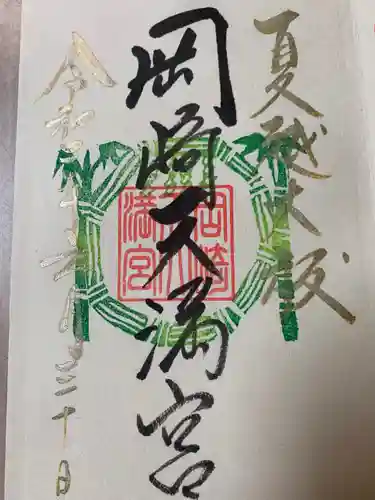 夏越大祓
岡崎天満宮
岡崎天満宮
令和 年六月三十日